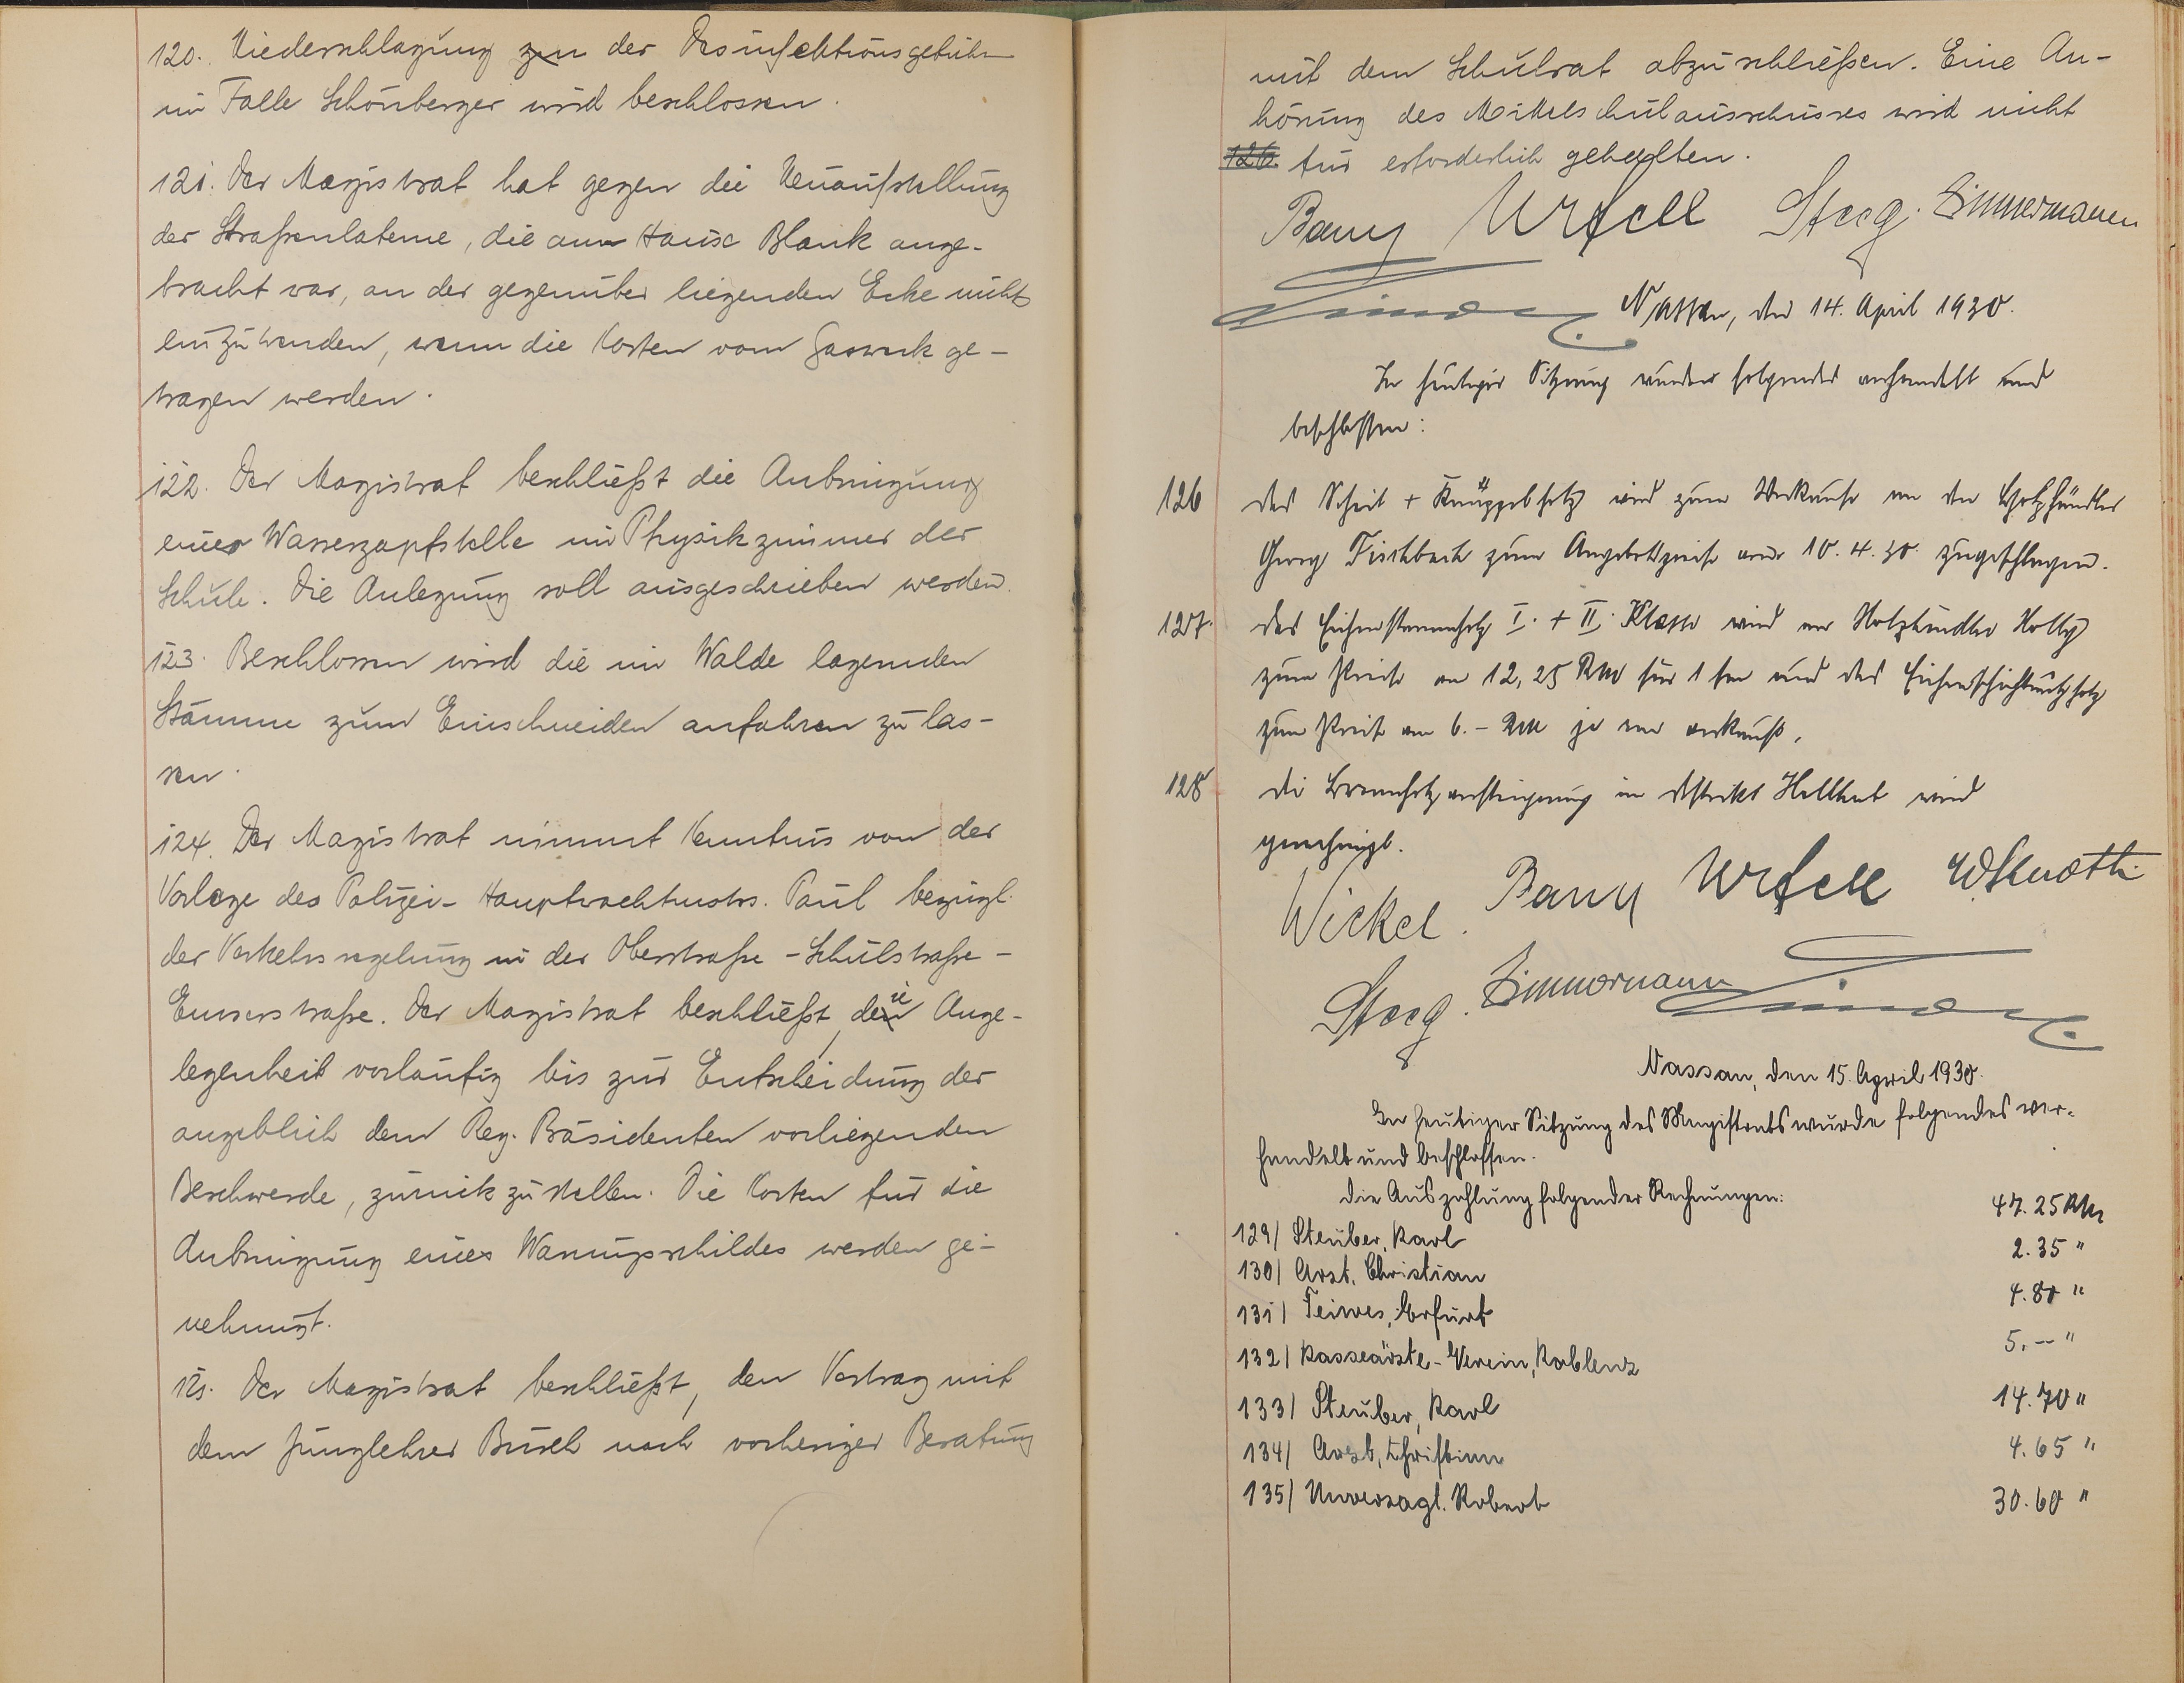 120. Niederschlagung zu der Desinfektionsgebühr
im Falle Schönberger wird beschlossen.
121. Der Magistrat hat gegen die Neuaufstellung
der Straßenlaterne, die am Hause Blank ange-
bracht war, an der gegenüber liegenden Ecke nichts
einzuwenden, wenn die Kosten vom Gaswerk ge-
tragen werden.
122. Der Magistrat beschließt die Anbringung
einer Wasserzapfstelle im Physikzimmer der
Schule. Die Anlegung soll ausgeschrieben werden.
123. Beschlossen wird die im Walde lagernden
Stämme zum Einschneiden anfahren zu las-
sen.
124. Der Magistrat nimmt Kenntnis von der
Vorlage des Polizei-Hauptwachtmstrs. Paul bezügl.
der Verkehrsregelung in der Oberstraße - Schulstraße -
Emserstraße. Der Magistrat beschließt, die Ange-
legenheit vorläufig bis zur Entscheidung der
angeblich dem Reg. Präsidenten vorliegenden
Beschwerde, zurückzustellen. Die Kosten für die
Anbringung eines Warnungsschildes werden ge-
nehmigt.
125. Der Magistrat beschließt, den Vertrag mit
dem Junglehrer Busch nach vorheriger Beratung
mit dem Schulrat abzuschließen. Eine An-
hörung des Mittelschulausschusses wird nicht
126. für erforderlich gehalten.
Steeg. Zimmermann
Nassau, den 14. April 1930.
In heutiger Sitzung wurde folgendes verhandelt und
beschlossen:
126 Das Scheit + Knüppelholz wird zum Verkaufe an den Holzhändler
Georg Fischbach zum Angebotspreise vom 10.4.30 zugeschlagen.
127. Das Eichenstammholz I. + II. Klasse wird an Holzhändler
zum Preise von 12,25 RM für 1 fm und das Eichenschichtnutzholz
zum Preise von 6.- RM je rm verkauft.
128 Die Brennholzversteigerung im Distrikt wird
genehmigt.
Wickel.
Steeg. Zimmermann
Nassau, den 15. April 1930.
In heutiger Sitzung des Magistrats wurde folgendes ver-
handelt und beschlossen.
Die Auszahlung folgender Rechnungen:
129/ Steuber, Karl 47.25 RM
130/ Arzt, Christian 2.35 "
131/ Teiwes, Erfurt 4.80 "
132/ Kasseärzte-Verein, Koblenz 5.-- "
133/ Steuber, Karl 14.70 "
134/ Arzt, Christian 4.65 "
135/ Unverzagt, Robert 30.60 "